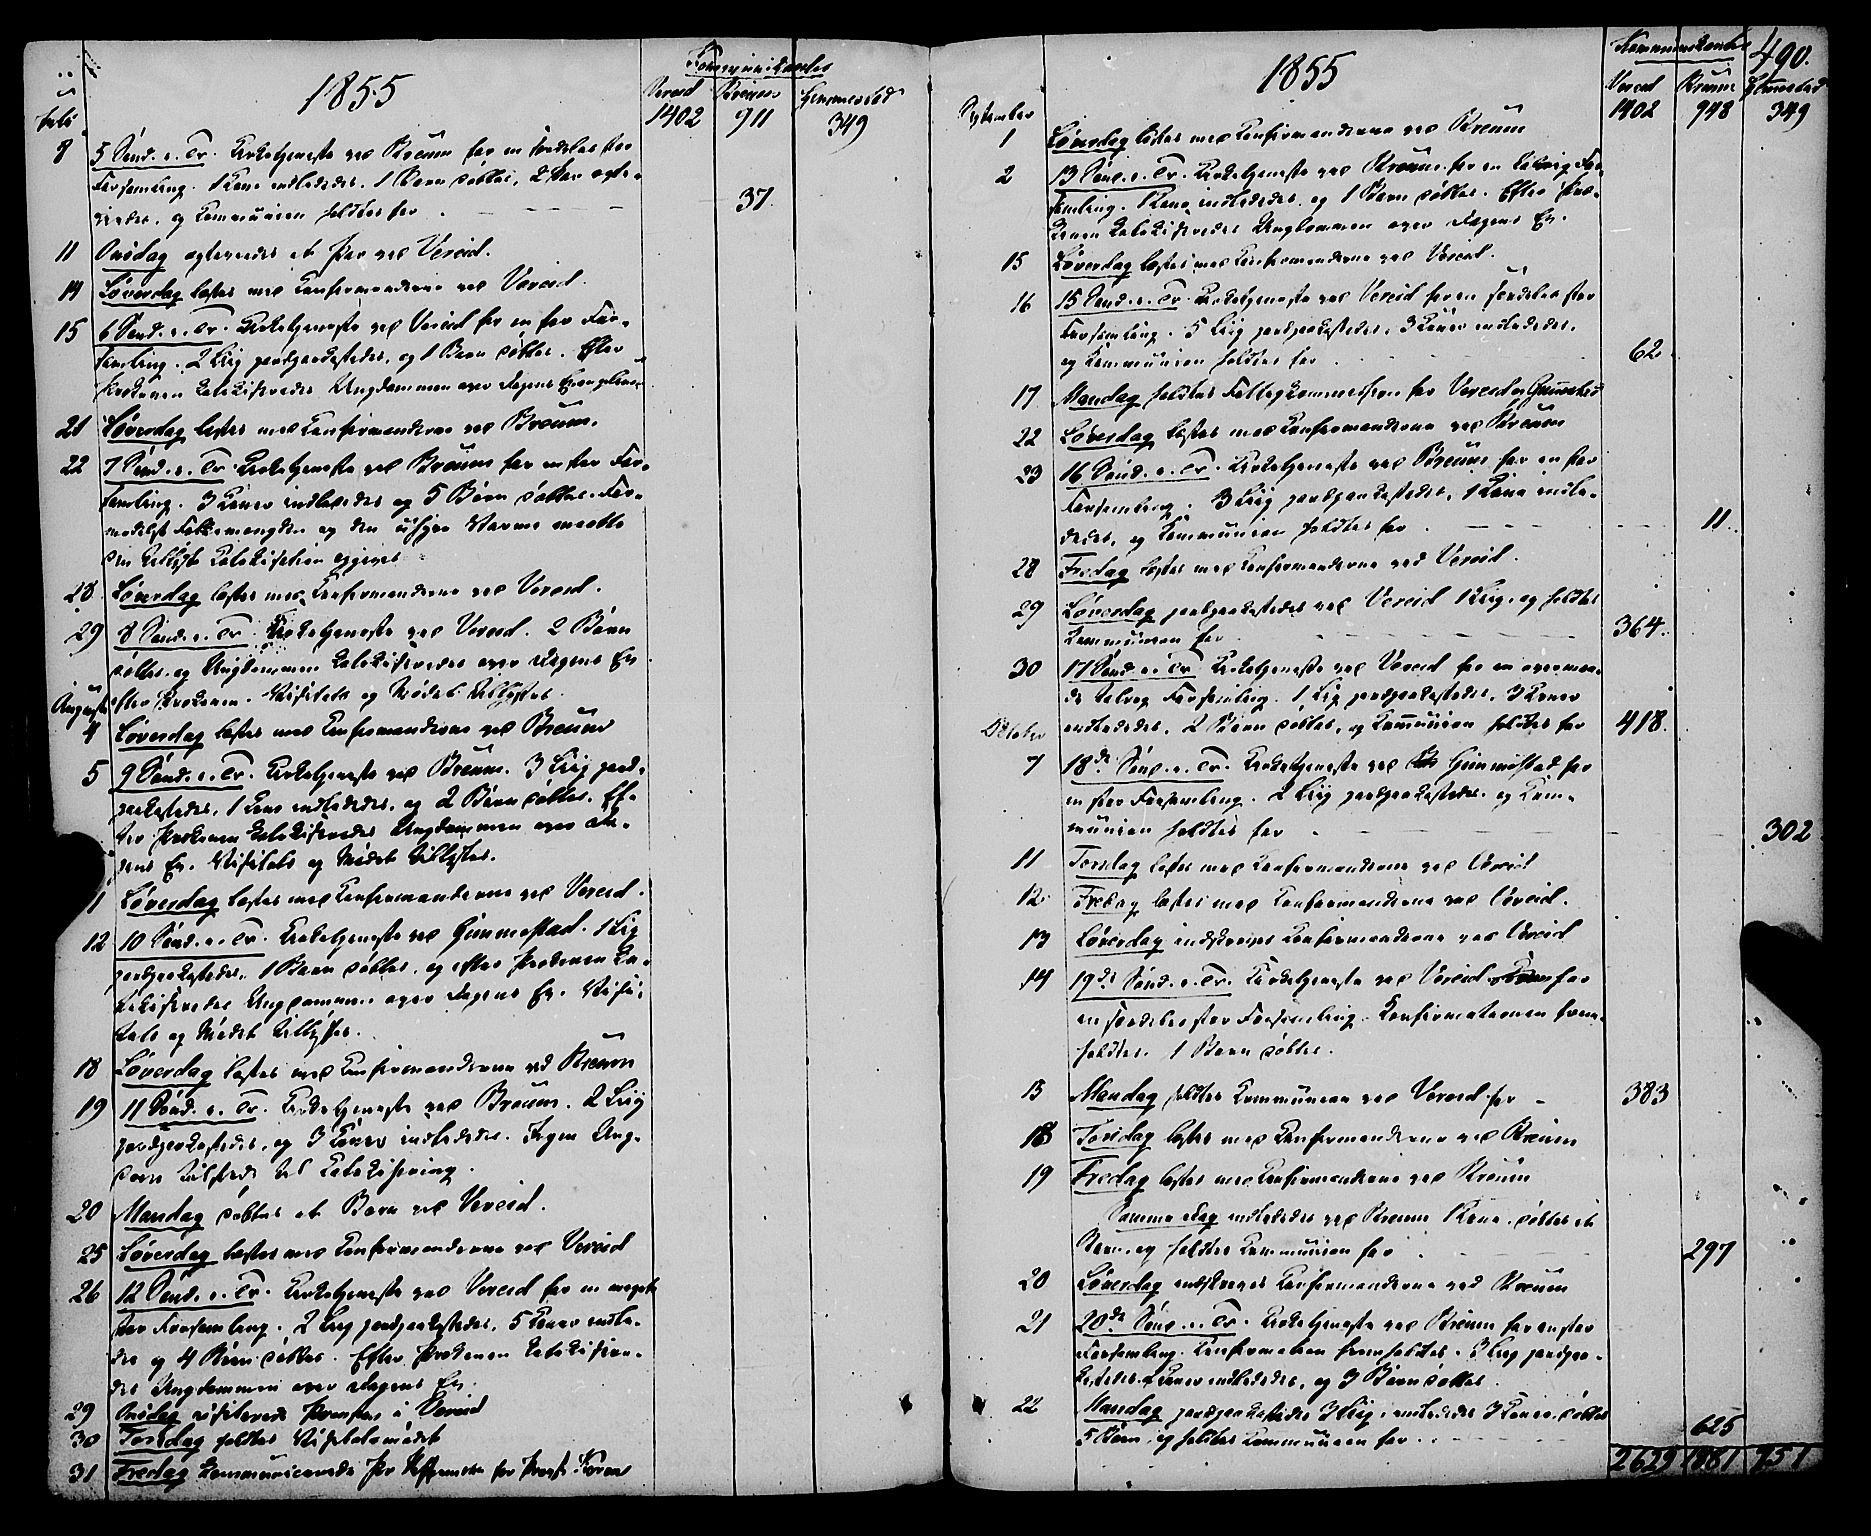 1855
Vereid Breum Gimmestad
1402 911 349
Juli
8 5 Sønd. e. Tr. Kirketjeneste ved Breum for en særdeles stor
Forsamling. 1 Kone indlededes, 1 Barn døbtes, 2 Par egte-
viedes, og Kommunion holdtes for 37.
11 Onsdag egteviedes et Par ved Vereid.
14 Løverdag læstes med Konfirmanderne ved Vereid.
15 6 Sønd. e. Tr. Kirketjeneste ved Vereid for en stor For-
samling. 2 Liig jordpaakastedes, og 1 Barn døbtes. Efter
Prækenen katekiseredes Ungdommen over Dagens Evangelium
21 Løverdag læstes med Konfirmanderne ved Breum.
22 7 Sønd. e. Tr. Kirketjeneste ved Breum for en stor For-
samling. 3 Koner indlededes og 5 Børn døbtes. For-
medelst Folkemængden og den uhyre Varme maatte
den tillyste Katekisation opgives
28. Løverdag læstes med Konfirmanderne ved Vereid.
29 8 Sønd. e. Tr. Kirketjeneste ved Vereid. 2 Børn
døbtes og Ungdommen katekiseredes over Dagens Ev.
efter Prækenen. Visitats og Mødet tillystes.
August
4 Løverdag læstes med Konfirmanderne ved Breum
5 9 Sønd. e. Tr. Kirketjeneste ved Breum. 3 Liig jord-
paakastedes, 1 Kone indlededes, og 2 Børn døbtes. Ef-
ter Prækenen katekiseredes Ungdommen over Da-
gens Ev. Visitats og Mødet tillystes.
11 Løverdag læstes med Konfirmanderne ved Vereid.
12 10 Sønd. e. Tr. Kirketjeneste ved Gimmestad. 1 Liig
jordpaakastedes, 1 Barn døbtes, og efter Prækenen ka-
tekiseredes Ungdommen over Dagens Ev. Visi-
tats og Mødet tillystes.
18 Løverdag læstes med Konfirmanderne ved Breum
19 11 Sønd. e. Tr. Kirketjeneste ved Breum. 2 Liig
jordpaakastedes, og 3 Koner indlededes. Ingen Ung-
dom tilstede til Katekisering.
20 Mandag døbtes et Barn ved Vereid.
25 Løverdag læstes med Konfirmanderne ved Vereid
26 12 Sønd. e. Tr. Kirketjeneste ved Vereid for en meget
stor Forsamling. 2 Liig jordpaakastedes, 5 Koner indle-
des og 4 Børn døbtes. Efter Prækenen katekisere-
des Ungdommen over Dagens Ev.
29 Onsdag visiterede Provsten i Vereid
30 Torsdag holdtes Visitatsmødet
31 Fredag kommunicerede
1855
490.
Vereid Breum Gimmestad
1402 948 349
September
1 Løverdag læstes med Konfirmanderne ved Breum
2 13 Sønd. e. Tr. Kirketjeneste ved Breum for en talrig For-
samling. 1 Kone indlededes, og 1 Barn døbtes. Efter Præ-
kenen katekiseredes Ungdommen over Dagens Ev.
15 Løverdag læstes med Konfirmanderne ved Vereid.
16 15 Sønd. e. Tr. Kirketjeneste ved Vereid for en særdeles stor
Forsamling. 5 Liig jordpaakastedes, 3 Koner indlededes,
og Kommunion holdtes for 62.
17 Mandag holdtes Fattigkommission for Vereid og Gimmestad
22 Løverdag læstes med Konfirmanderne ved Breum
23 16 Sønd. e. Tr. Kirketjeneste ved Breum for en stor
Forsamling. 3 Liig jordpaakastedes, 1 Kone indle-
dedes, og Kommunion holdtes for 11.
28 Fredag læstes med Konfirmanderne ved Vereid.
29 Løverdag jordpaakastedes ved Vereid 1 Liig, og holdtes
Kommunion for 364.
30 17 Sønd. e. Tr. Kirketjeneste ved Vereid for en overmaa-
de talrig Forsamling. 1 Liig jordpaakastedes, 3 Koner
indlededes, 2 Børn døbtes, og Kommunion holdtes for 418.
October
7 18de Sønd. e. Tr. Kirketjeneste ved Gimmestad for
en stor Forsamling. 2 Liig jordpaakastedes og Kom-
munion holdtes for 302
11 Torsdag læstes med Konfirmanderne ved Vereid
12. Fredag læstes med Konfirmanderne ved Vereid.
13 Løverdag indskreves Konfirmanderne ved Vereid
14 19de Sønd. e. Tr. Kirketjeneste ved Vereid for
en særdeles stor Forsamling. Konfirmationen frem-
holdtes. 1 Barn døbtes.
15 Mandag holdtes Kommunion ved Vereid for 383
18 Torsdag læstes med Konfirmanderne ved Breum
19 Fredag læstes med Konfirmanderne ved Breum
Samme Dag indlededes ved Breum 1 Kone, døbtes et
Barn, og holdtes Kommunion for 297
20 Løverdag indskreves Konfirmanderne ved Breum
21 20de Sønd. e. Tr. Kirketjeneste ved Breum for en stor
Forsamling. Konfirmation fremholdtes. 3 Liig jordpaa-
kastedes, Koner indlededes, og 3 Børn døbtes.
22 Mandag jordpaakastedes 3 Liig, indlededes 3 Koner, døbtes
5 Børn, og holdtes Kommunion for 625
2629 1881 651